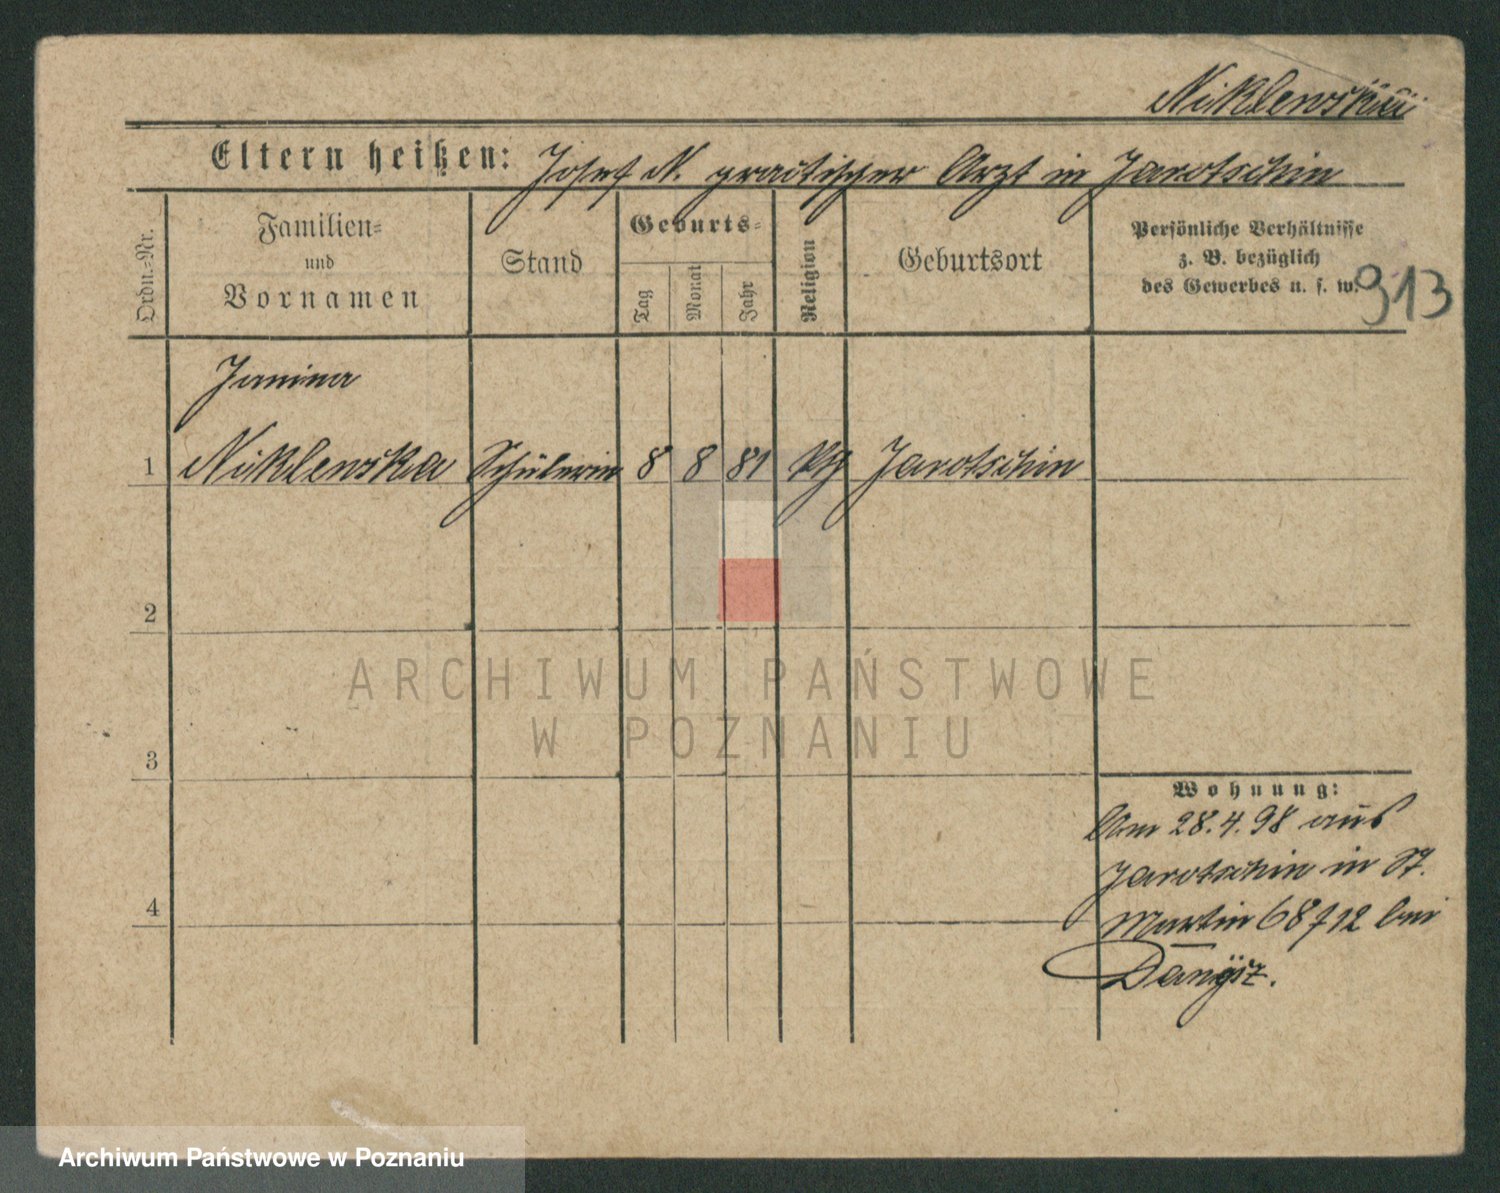 Niklewski
Eltern heißen: Josef N. practischer Arzt in Jarotschin
Ordn.-Nr.
Familien-
und
Vornamen
Stand
Geburts-
Tag
Monat
Jahr
Religion
Geburtsort
Persönliche Verhältnisse
z. B. bezüglich
des Gewerbes u. s. w.
913
Janina
1 Niklewska Schülerin 8 8 81 kth Jarotschin
2
3
4
Wohnung:
Am 28.4.98 aus
Jarotschin in St.
Martin 68 f 12 bei
ARCHIWUM PAŃSTWOWE
W POZNANIU
Archiwum Państwowe w Poznaniu